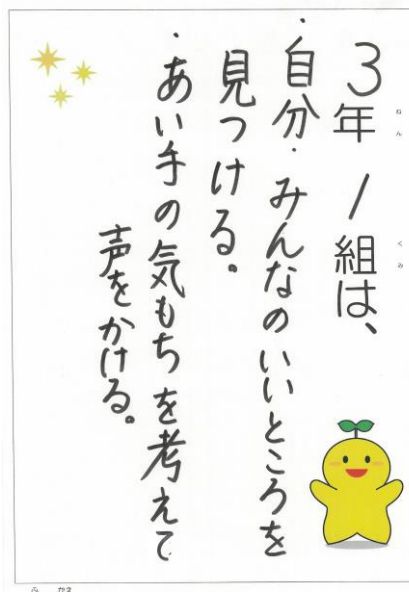 3年1組は、
・自分・みんなのいいところを
見つける。
・あい手の気もちを考えて
声をかける。